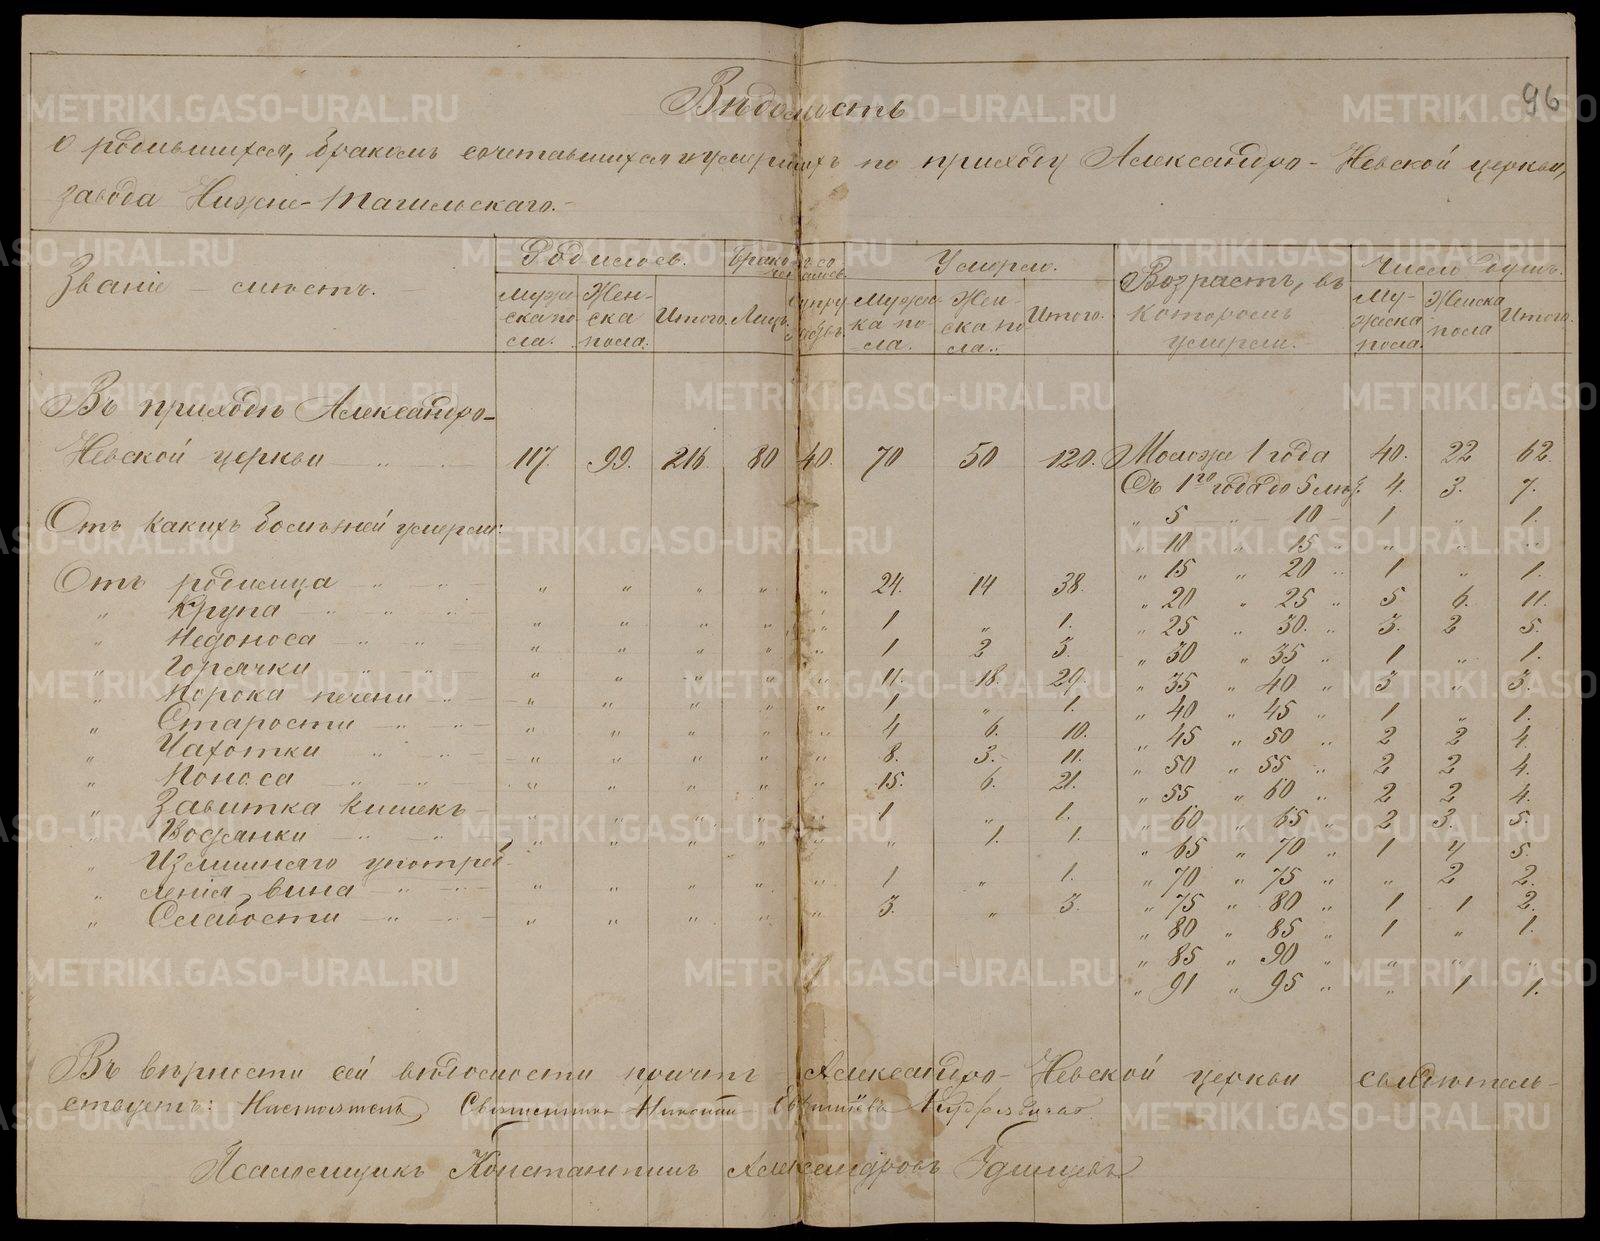 96
Вѣдомость
о родившихся, бракомъ сочетавшихся и умершихъ по приходу Александро-Невской церкви,
завода Нижне-Тагильскаго.-
Званіе - мѣстъ. | Родилось. | Бракомъ сочеталось | Умерло. | Возрастъ, въ которомъ умерли. | Число душъ.
Мужеска пола. | Женска пола. | Итого. | Лицъ. | Супружествъ. | Мужеска пола. | Женска пола. | Итого. | Мужеска пола. | Женска пола | Итого.
Въ приходѣ Александро-
Невской церкви " 117. 99. 216. 80 40. 70 50 120. Моложе 1 года 40. 22 62.
Съ 1го года до 5 лѣт. 4. 3. 7.
Отъ какихъ болѣзней умерли: " 5 " 10 1 " 1.
" 10 " 15 " " " "
" 15 " 20 " 1 " 1.
Отъ родимца " " " " " " " 24. 14 38. " 20 " 25 " 5 6. 11.
" Крупа " " " " " " " 1 " 1. " 25 " 30. " 3. 2 5.
" Недоноса " " " " " " " 1 2 3. " 30 " 35 " 1 " 1.
" Горячки " " " " " " " 11. 18. 29. " 35 " 40 " 3 " 3.
" Порока печени " " " " " " 1 " 1. " 40 " 45 " 1 " 1.
" Старости " " " " " " " 4 6. 10. " 45 " 50 " 2 2 4.
" Чахотки " " " " " " " 8. 3. 11. " 50 " 55 " 2 2 4.
" Поноса " " " " " " " 15. 6. 21. " 55 " 60 " 2 2 4.
" Завитка кишекъ " " " " " 1 " 1. " 60 " 65 " 2 3. 5.
" Водянки " " " " " " " " 1. 1. " 65 " 70 " 1 4 5.
" Излишняго употреб-
ленія вина " " " " " " " 1 " 1. " 70 " 75 " " 2 2.
" Слабости " " " " " " " 3. " 3. " 75 " 80 " 1 1 2.
" 80 " 85 " 1 " 1.
" 85 " 90 " " " "
" 91 " 95 " " 1 1.
Въ вѣрности сей вѣдомости причтъ Александро-Невской церкви свидѣтель-
ствуетъ: Настоятель, Священникъ Николай
Псаломщикъ Константинъ Александровъ
METRIKI.GASO-URAL.RU